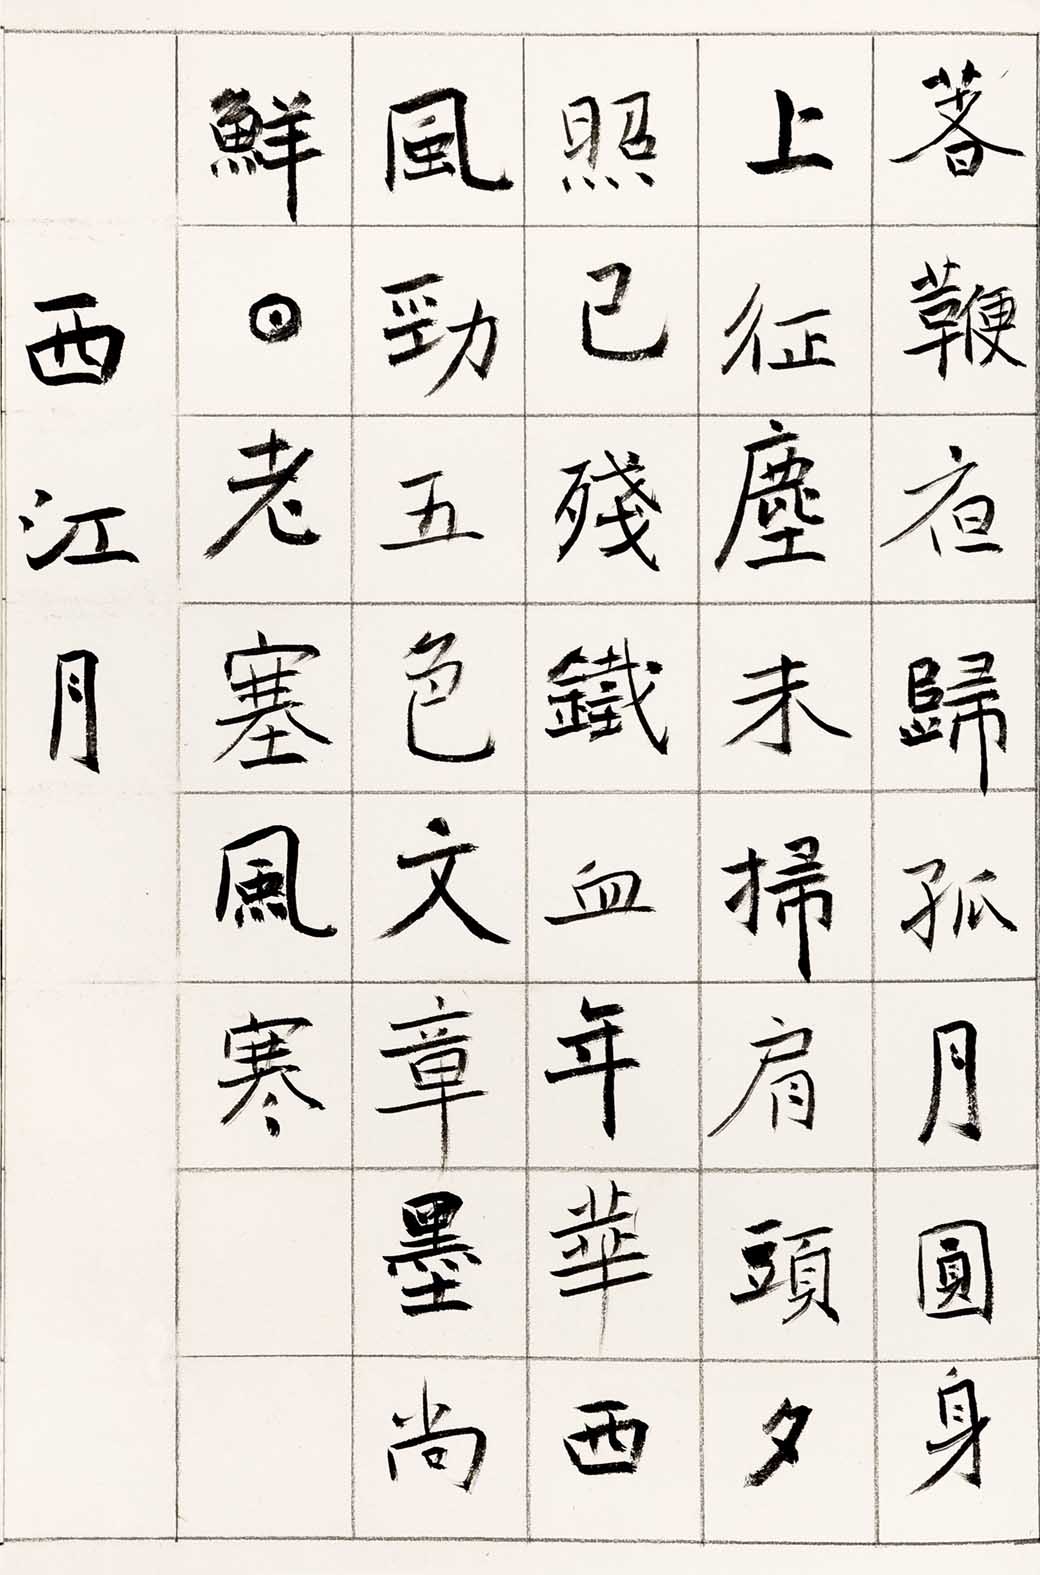 著鞭亱歸孤月圓身
上征塵未掃肩頭夕
照已殘鐵血年華西
風勁五色文章墨尚
鮮◎老塞風寒
西江月